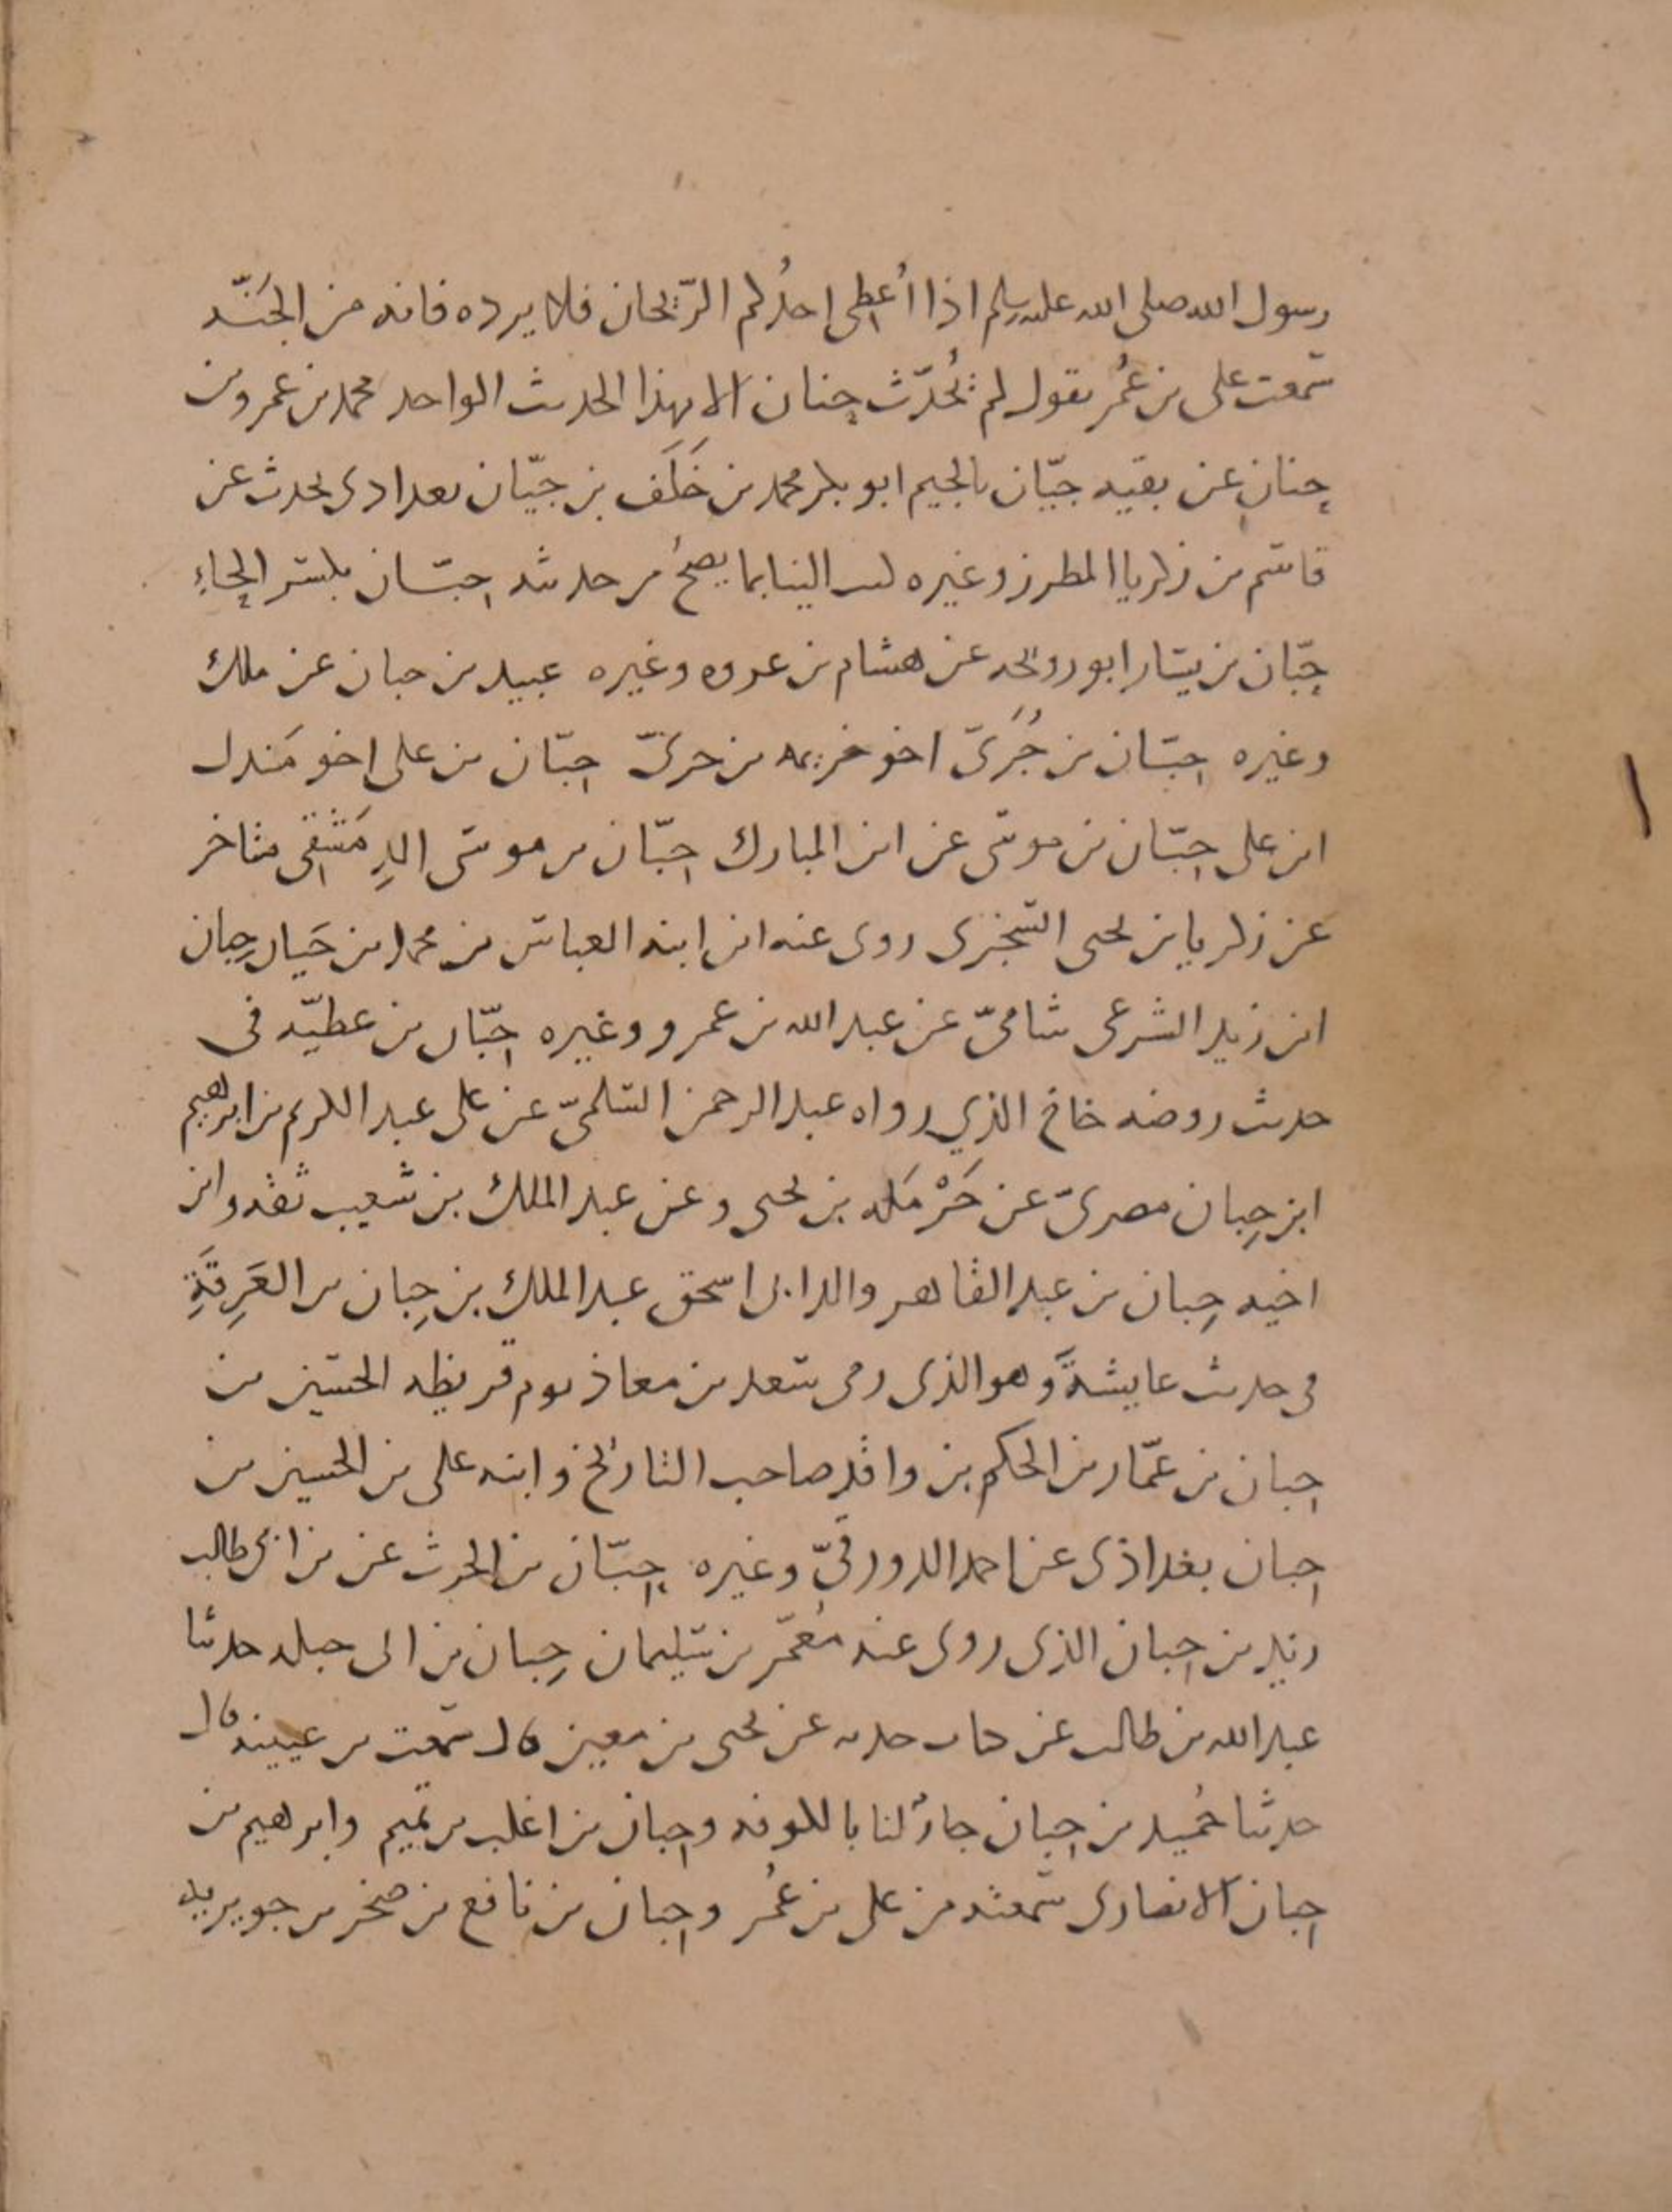 رسول الله صلى الله عليه وسلم اذا أُعطى احدُكم الرّيحان فلا يرده فانه من الجَنّه
سمعت على بن عُمر يقول لم يُحدّث حنان الا بهذا الحديث الواحد محمد بن عمرو بن
حنانٍ عن بقيه جيّان بالجيم ابو بكر محمد بن خَلَف بن جيّان بغدادى يحدث عن
قاسم بن زكريا المطرز وغيره كتب الينا بما يصحُ من حديثه حبّان بكسر الحاءِ
حِبّان بن يسار ابو روحه عن هشام بن عروه وغيره عبيد بن حبان عن ملك
وغيره حبّان بن جُزَىّ اخو خزيمه بن جزىّ حبّان بن على اخو مَندل
ابن على حبّان بن موسى عن ابن المبارك حبّان بن موسى الدِمَشقِى متاخر
عن زكريا بن يحيى السّجزى روى عنه ابن ابنه العباس بن محمد بن حَبان حِبان
ابن زيد الشرعى شامىّ عن عبد الله بن عمرو وغيره حبّان بن عطيّه فى
حديث روضه خاخ الذي رواه عبد الرحمن السّلمىّ عن على عبد الكريم بن ابرهيم
ابن حِبان مصرىّ عن حَرْمَله بن يحيى وعن عبد الملك بن شعيب ثقه وابن
اخيه حِبان بن عبد القاهر والد ابى اسحق عبد الملك بن حِبان بن العَرِقَةِ
فى حديث عايشةَ وهو الذى رمى سعد بن معاذ يوم قريظه الحسين بن
حبان بن عمّار بن الحكم بن واقد صاحب التاريخ وابنه على بن الحسين بن
حبان بغداذى عن احمد الدورقىّ وغيره حِبّان بن الحرث عن بن ابى طالب
زيد بن حبان الذى روى عنه مُعمّر بن سليمان حِبان بن ابى جبله حدثنا
عبد الله بن طالب عن حدثه عن يحيى بن معين قال سمعت بن عيينه قال
حدثنا حُميد بن حبان جارٌ لنا بالكوفه وحبان بن اغلب بن تميم وابرهيم بن
حبان الانصارى سمعته من على بن عُمر وحبان بن نافع بن صخر بن جويريه